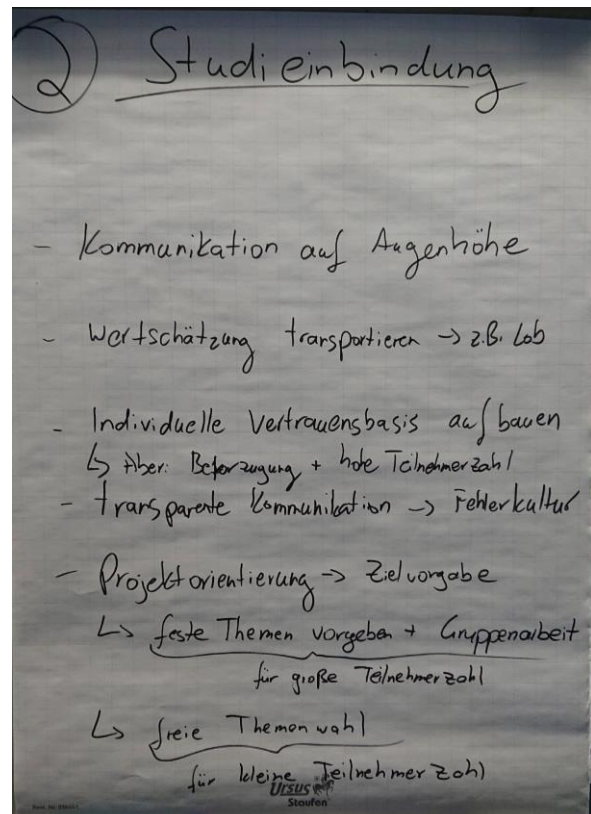 2 Studieinbindung
- Kommunikation auf Augenhöhe
- Wertschätzung transportieren → z.B. Lob
- Individuelle Vertrauensbasis aufbauen
↳ Aber: Bevorzugung + hohe Teilnehmerzahl
- transparente Kommunikation → Fehlerkultur
- Projektorientierung → Zielvorgabe
↳ feste Themen vorgeben + Gruppenarbeit
für große Teilnehmerzahl
↳ freie Themenwahl
für kleine Teilnehmerzahl
Ursus
Staufen